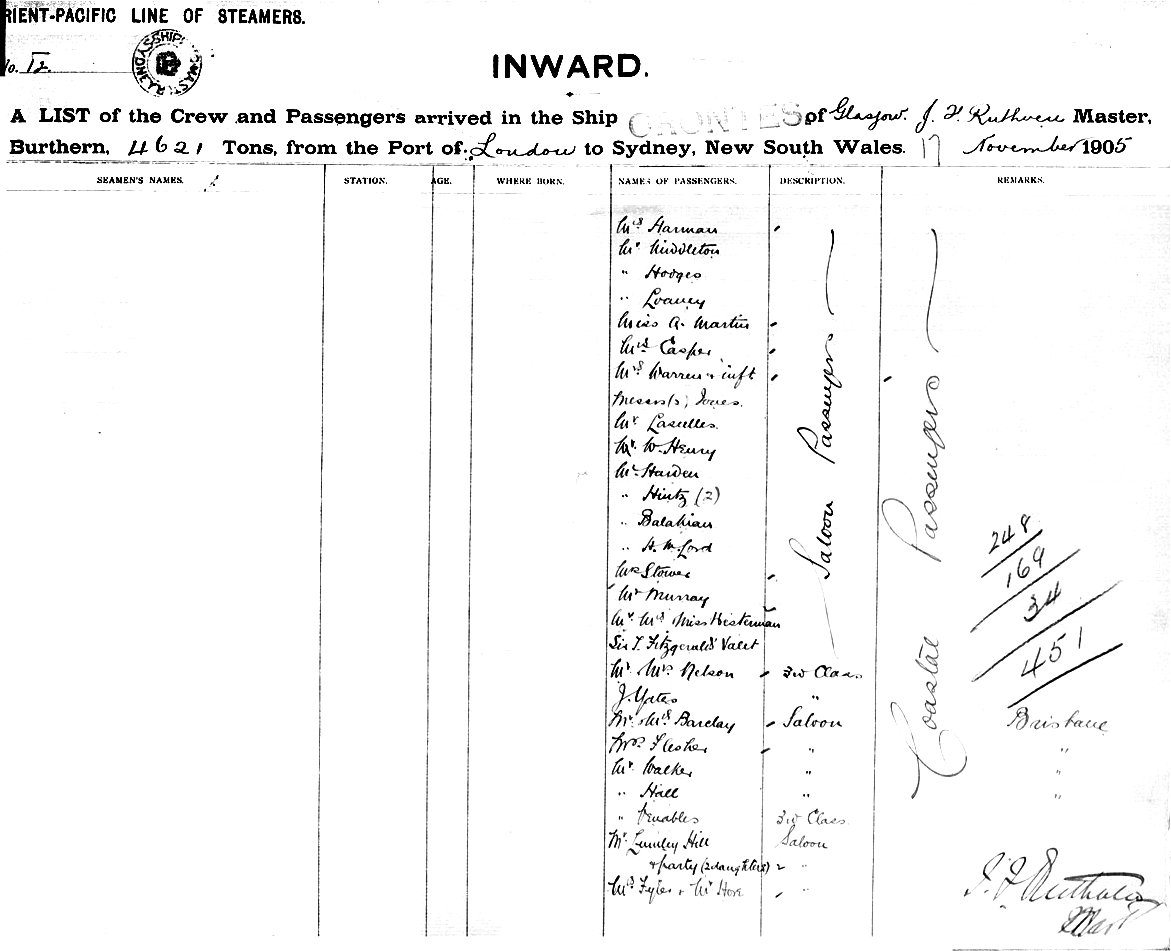 RIENT-PACIFIC LINE OF STEAMERS.
No. 12.
INWARD.
A LIST of the Crew and Passengers arrived in the Ship ORONTES of Glasgow. J. F. Ruthven Master,
Burthern, 4621 Tons, from the Port of London to Sydney, New South Wales. 17 November 1905
SEAMEN'S NAMES. STATION. AGE. WHERE BORN. NAMES OF PASSENGERS. DESCRIPTION. REMARKS.
Mrs Harman
Mr Middleton
" Hodges
" Loaney
Miss A. Martin
Mrs Casper
Mrs Warren & inft
Messrs (2) Jones.
Mr Lascelles.
Mr W. Henry
Mr Harden
" Hintz (2)
" Balakian
" H. M. Lord
Mrs Stower
Mr Murray
Mr Mrs Miss Hesterman
Sir T. Fitzgerald's Valet
Mr Mrs Nelson 3rd Class
J. Yates "
Mr Mrs Barclay Saloon Brisbane
Mrs Flesher " "
Mr Walker " "
" Hall " "
" Venables 3rd Class.
Mr Lumley Hill Saloon
& party (2 daughters) "
Mrs Fyles & Mr Hore "
Saloon Passengers
Coastal Passengers
248
169
34
451
J. F. Ruthven